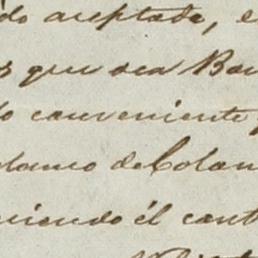 do aceptada, e
s que sea Ba
lo conveniente
de Colan
iendo él cont